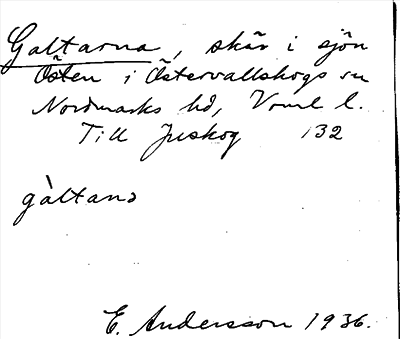 Galtarna, skär i sjön
Östen i Östervallskogs sn
Nordmarks hd, Vrml l.
Till Juskog 132
gàltanɔ
E. Andersson 1936.